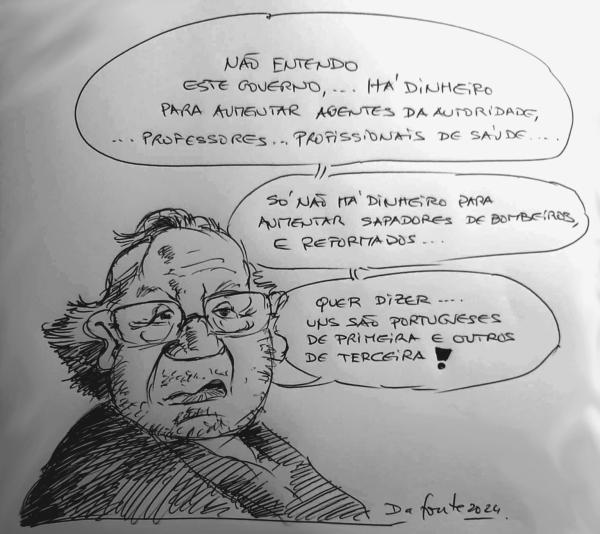 NÃO ENTENDO
ESTE GOVERNO,... HÁ DINHEIRO
PARA AUMENTAR AGENTES DA AUTORIDADE,
... PROFESSORES... PROFISSIONAIS DE SAÚDE....
SÓ NÃO HÁ DINHEIRO PARA
AUMENTAR SAPADORES DE BOMBEIROS,
E REFORMADOS...
QUER DIZER....
UNS SÃO PORTUGUESES
DE PRIMEIRA E OUTROS
DE TERCEIRA !
Da fonte 2024.